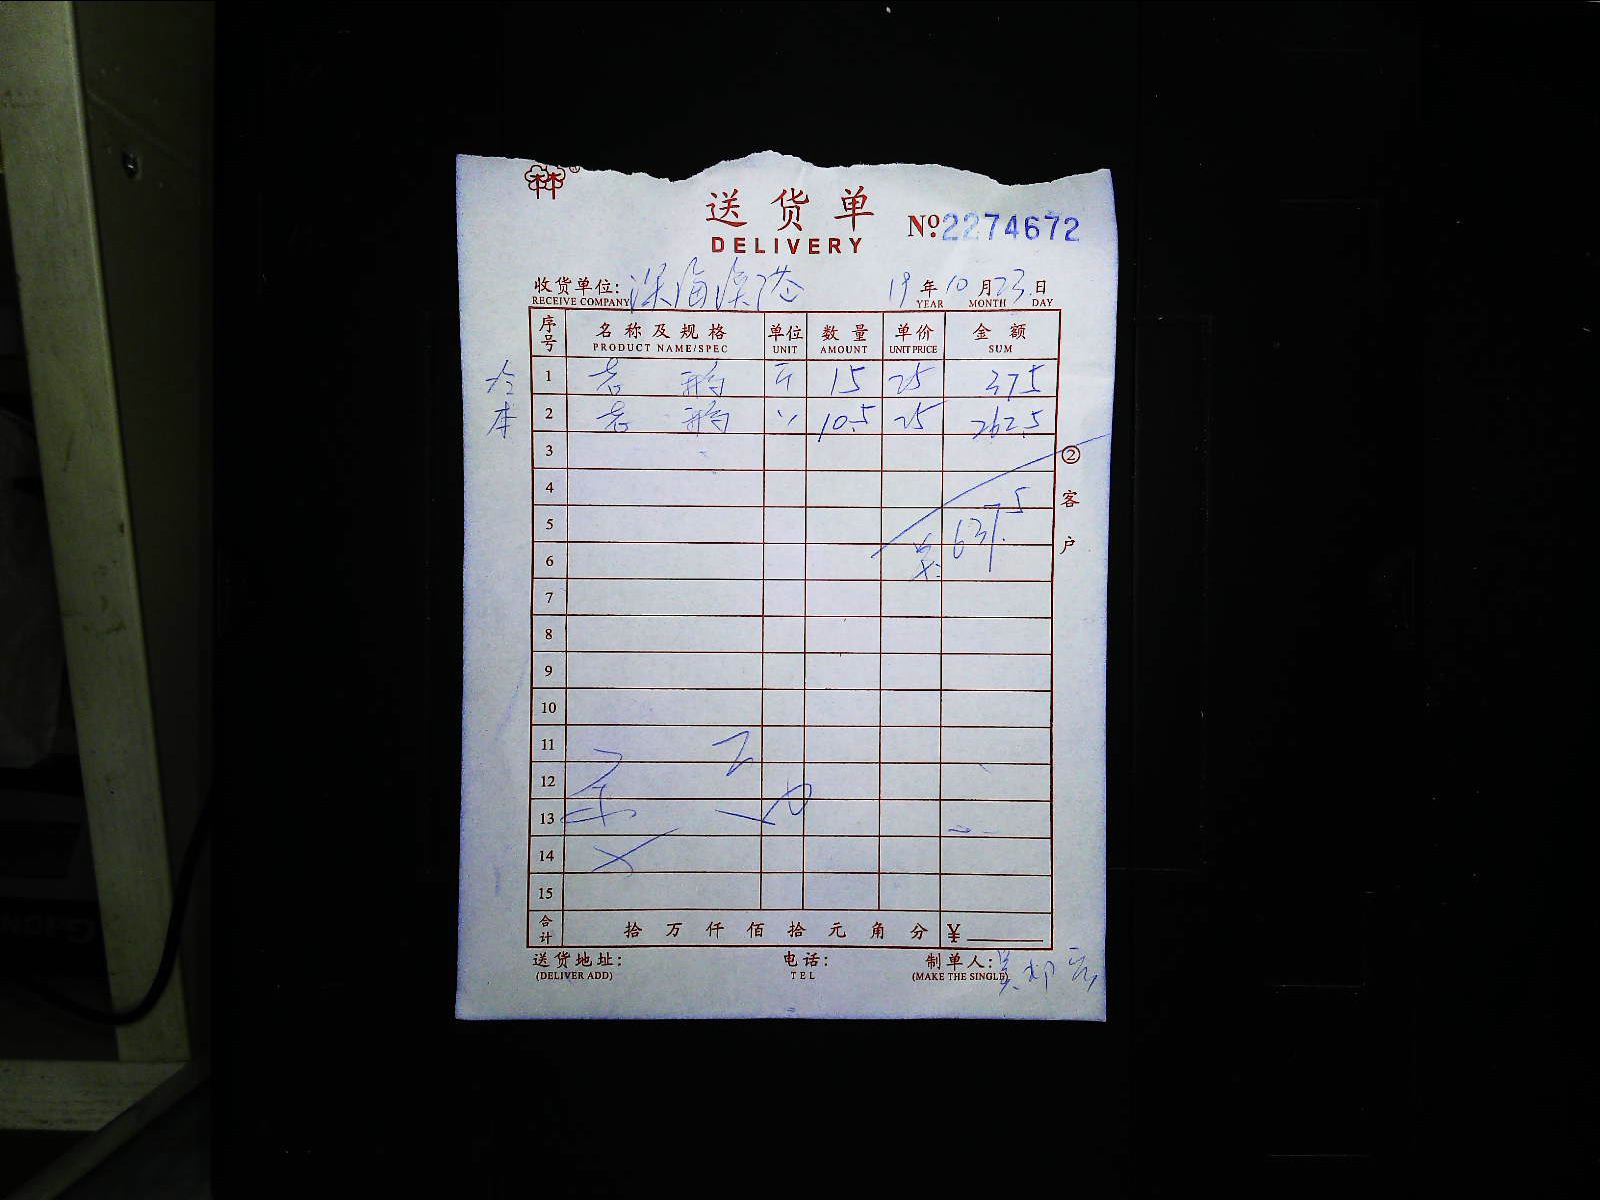 送货单
DELIVERY
№ 2274672
收货单位: 深海渔港 19年10月23日
RECEIVE COMPANY YEAR MONTH DAY
序号 名称及规格 单位 数量 单价 金额
PRODUCT NAME/SPEC UNIT AMOUNT UNIT PRICE SUM
1 老鹅 斤 15 25 375
2 老鹅 〃 10.5 25 262.5
3
② 客户
4
5 637.5
6
7
8
9
10
11
12
13
14
15
合计 拾 万 仟 佰 拾 元 角 分 ¥
送货地址: 电话: 制单人:
(DELIVER ADD) TEL (MAKE THE SINGLE)